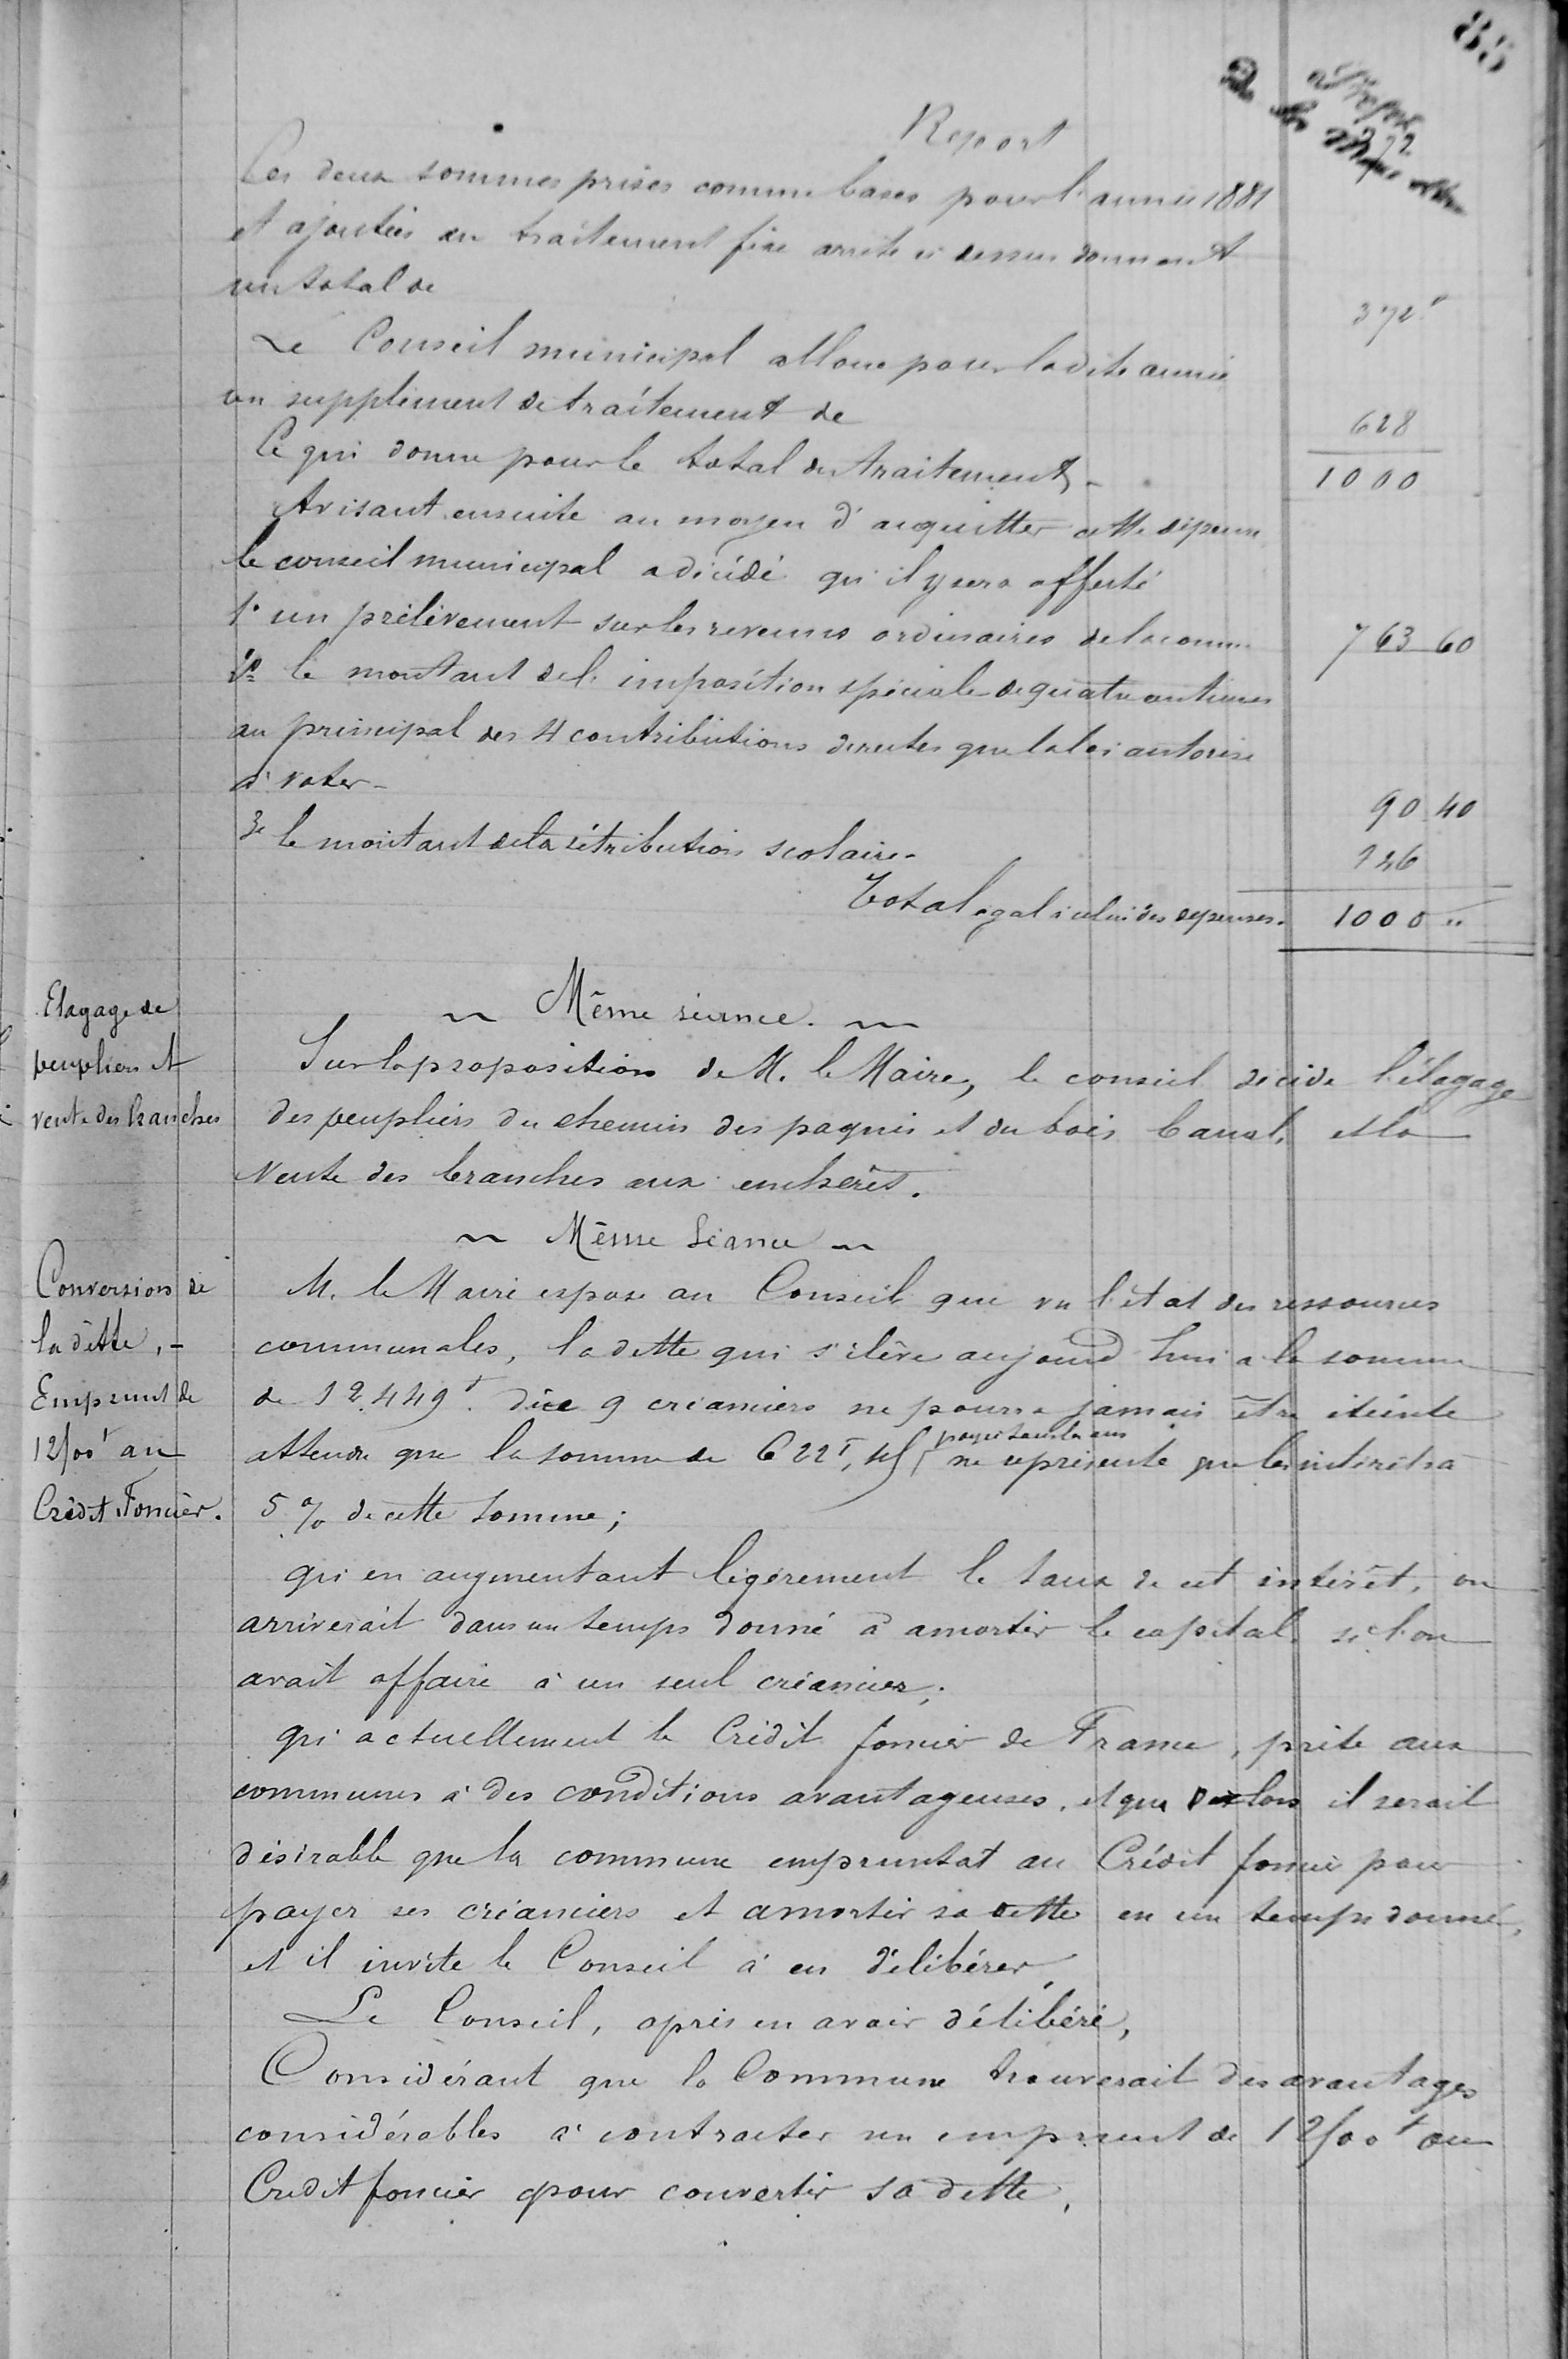 85
Report
372
Ces deux sommes prises comme bases pour l'année 1881
et ajoutées au traitement fixe arrêté ci dessus donnent
un total de 372f
Le Conseil municipal alloue pour ladite année
un supplément de traitement de 628
Ce qui donne pour le total du traitement - 1000
Avisant ensuite au moyen d'acquitter cette dépense
le conseil municipal a décidé qu'il y sera affecté
1° un prélèvement sur les revenus ordinaires de la comm 763 60
2° le montant de l'imposition spéciale de quatre centimes
au principal des 4 contributions directes que la loi autorise
à voter - 90 40
3° le montant de la rétribution scolaire 146
Total égal à celui des dépenses. 1000 "
~ Même séance. ~
Elagage de
peupliers et
vente des branches
Sur la proposition de M. le Maire, le conseil décide l'élagage
des peupliers du chemin des paquis et du bois banal, et la
vente des branches aux enchères.
~ Même Séance ~
Conversion de
la dette, -
Emprunt de
12500f au
Crédit Foncier.
M. le Maire expose au Conseil que vu l'état des ressources
communales, la dette qui s'élève aujourd'hui à la somme
de 12.449f due 9 créanciers ne pourra jamais être éteinte
attendu que la somme de 622f,45 payée tous les ans ne représente que les intérêts à
5 % de cette somme;
qu'en augmentant légèrement le taux de cet intérêt, on
arriverait dans un temps donné à amortir le capital, si l'on
avait affaire à un seul créancier;
qu'actuellement le Crédit foncier de France, prête aux
communes à des conditions avantageuses, et que dès lors il serait
désirable que la commune empruntât au Crédit foncier pour
payer ses créanciers et amortir sa dette en un temps donné,
et il invite le Conseil à en délibérer,
Le Conseil, après en avoir délibéré,
Considérant que la Commune trouverait des avantages
considérables à contracter un emprunt de 12500f au
Crédit foncier pour convertir sa dette,